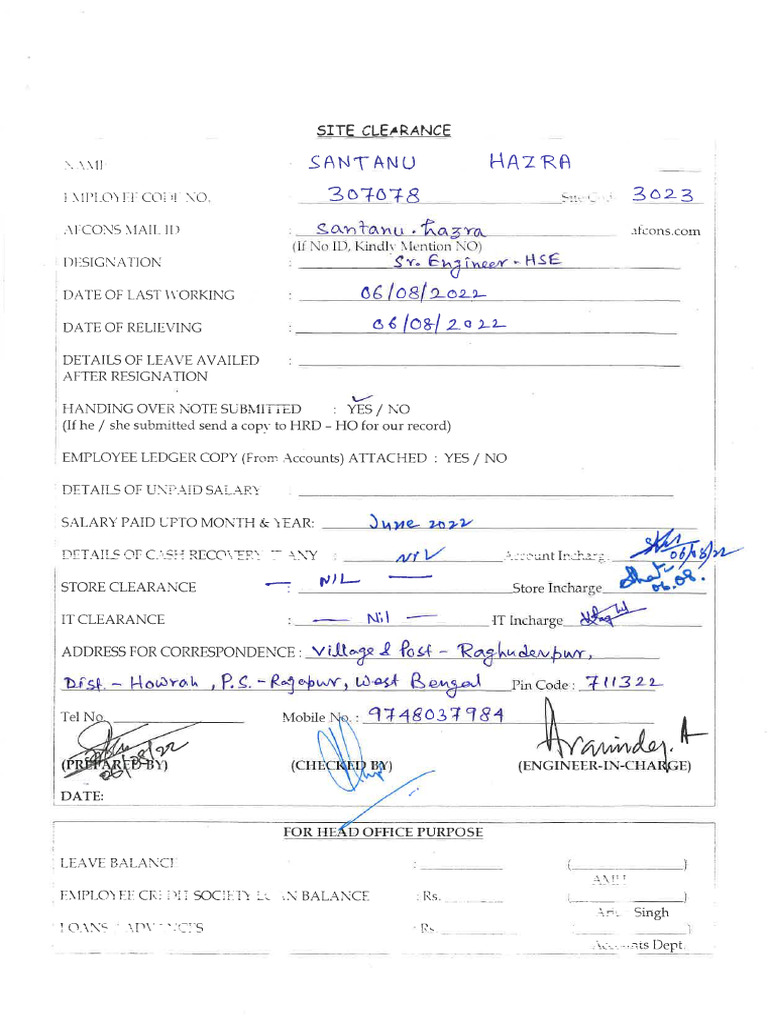 SITE CLEARANCE
NAME : SANTANU HAZRA
EMPLOYEE CODE NO. : 307078 Site Code 3023
AFCONS MAIL ID : santanu.hazra afcons.com
(If No ID, Kindly Mention NO)
DESIGNATION : Sr. Engineer - HSE
DATE OF LAST WORKING : 06/08/2022
DATE OF RELIEVING : 06/08/2022
DETAILS OF LEAVE AVAILED :
AFTER RESIGNATION
HANDING OVER NOTE SUBMITTED : YES / NO
(If he / she submitted send a copy to HRD – HO for our record)
EMPLOYEE LEDGER COPY (From Accounts) ATTACHED : YES / NO
DETAILS OF UNPAID SALARY :
SALARY PAID UPTO MONTH & YEAR: June 2022
DETAILS OF CASH RECOVERY IF ANY : NIL Account Incharge 06/08/22
STORE CLEARANCE : — NIL — Store Incharge 06.08.
IT CLEARANCE : — Nil — IT Incharge
ADDRESS FOR CORRESPONDENCE : Village & Post - Raghudevpur,
Dist. - Howrah, P.S. - Rajapur, West Bengal Pin Code : 711322
Tel No. Mobile No. : 9748037984
06/08/22 Aravinder. A
(PREPARED BY) (CHECKED BY) (ENGINEER-IN-CHARGE)
DATE:
FOR HEAD OFFICE PURPOSE
LEAVE BALANCE : ( )
EMPLOYEE CREDIT SOCIETY LOAN BALANCE : Rs. ( )
Singh
LOANS / ADVANCES : Rs. ( )
Accounts Dept.